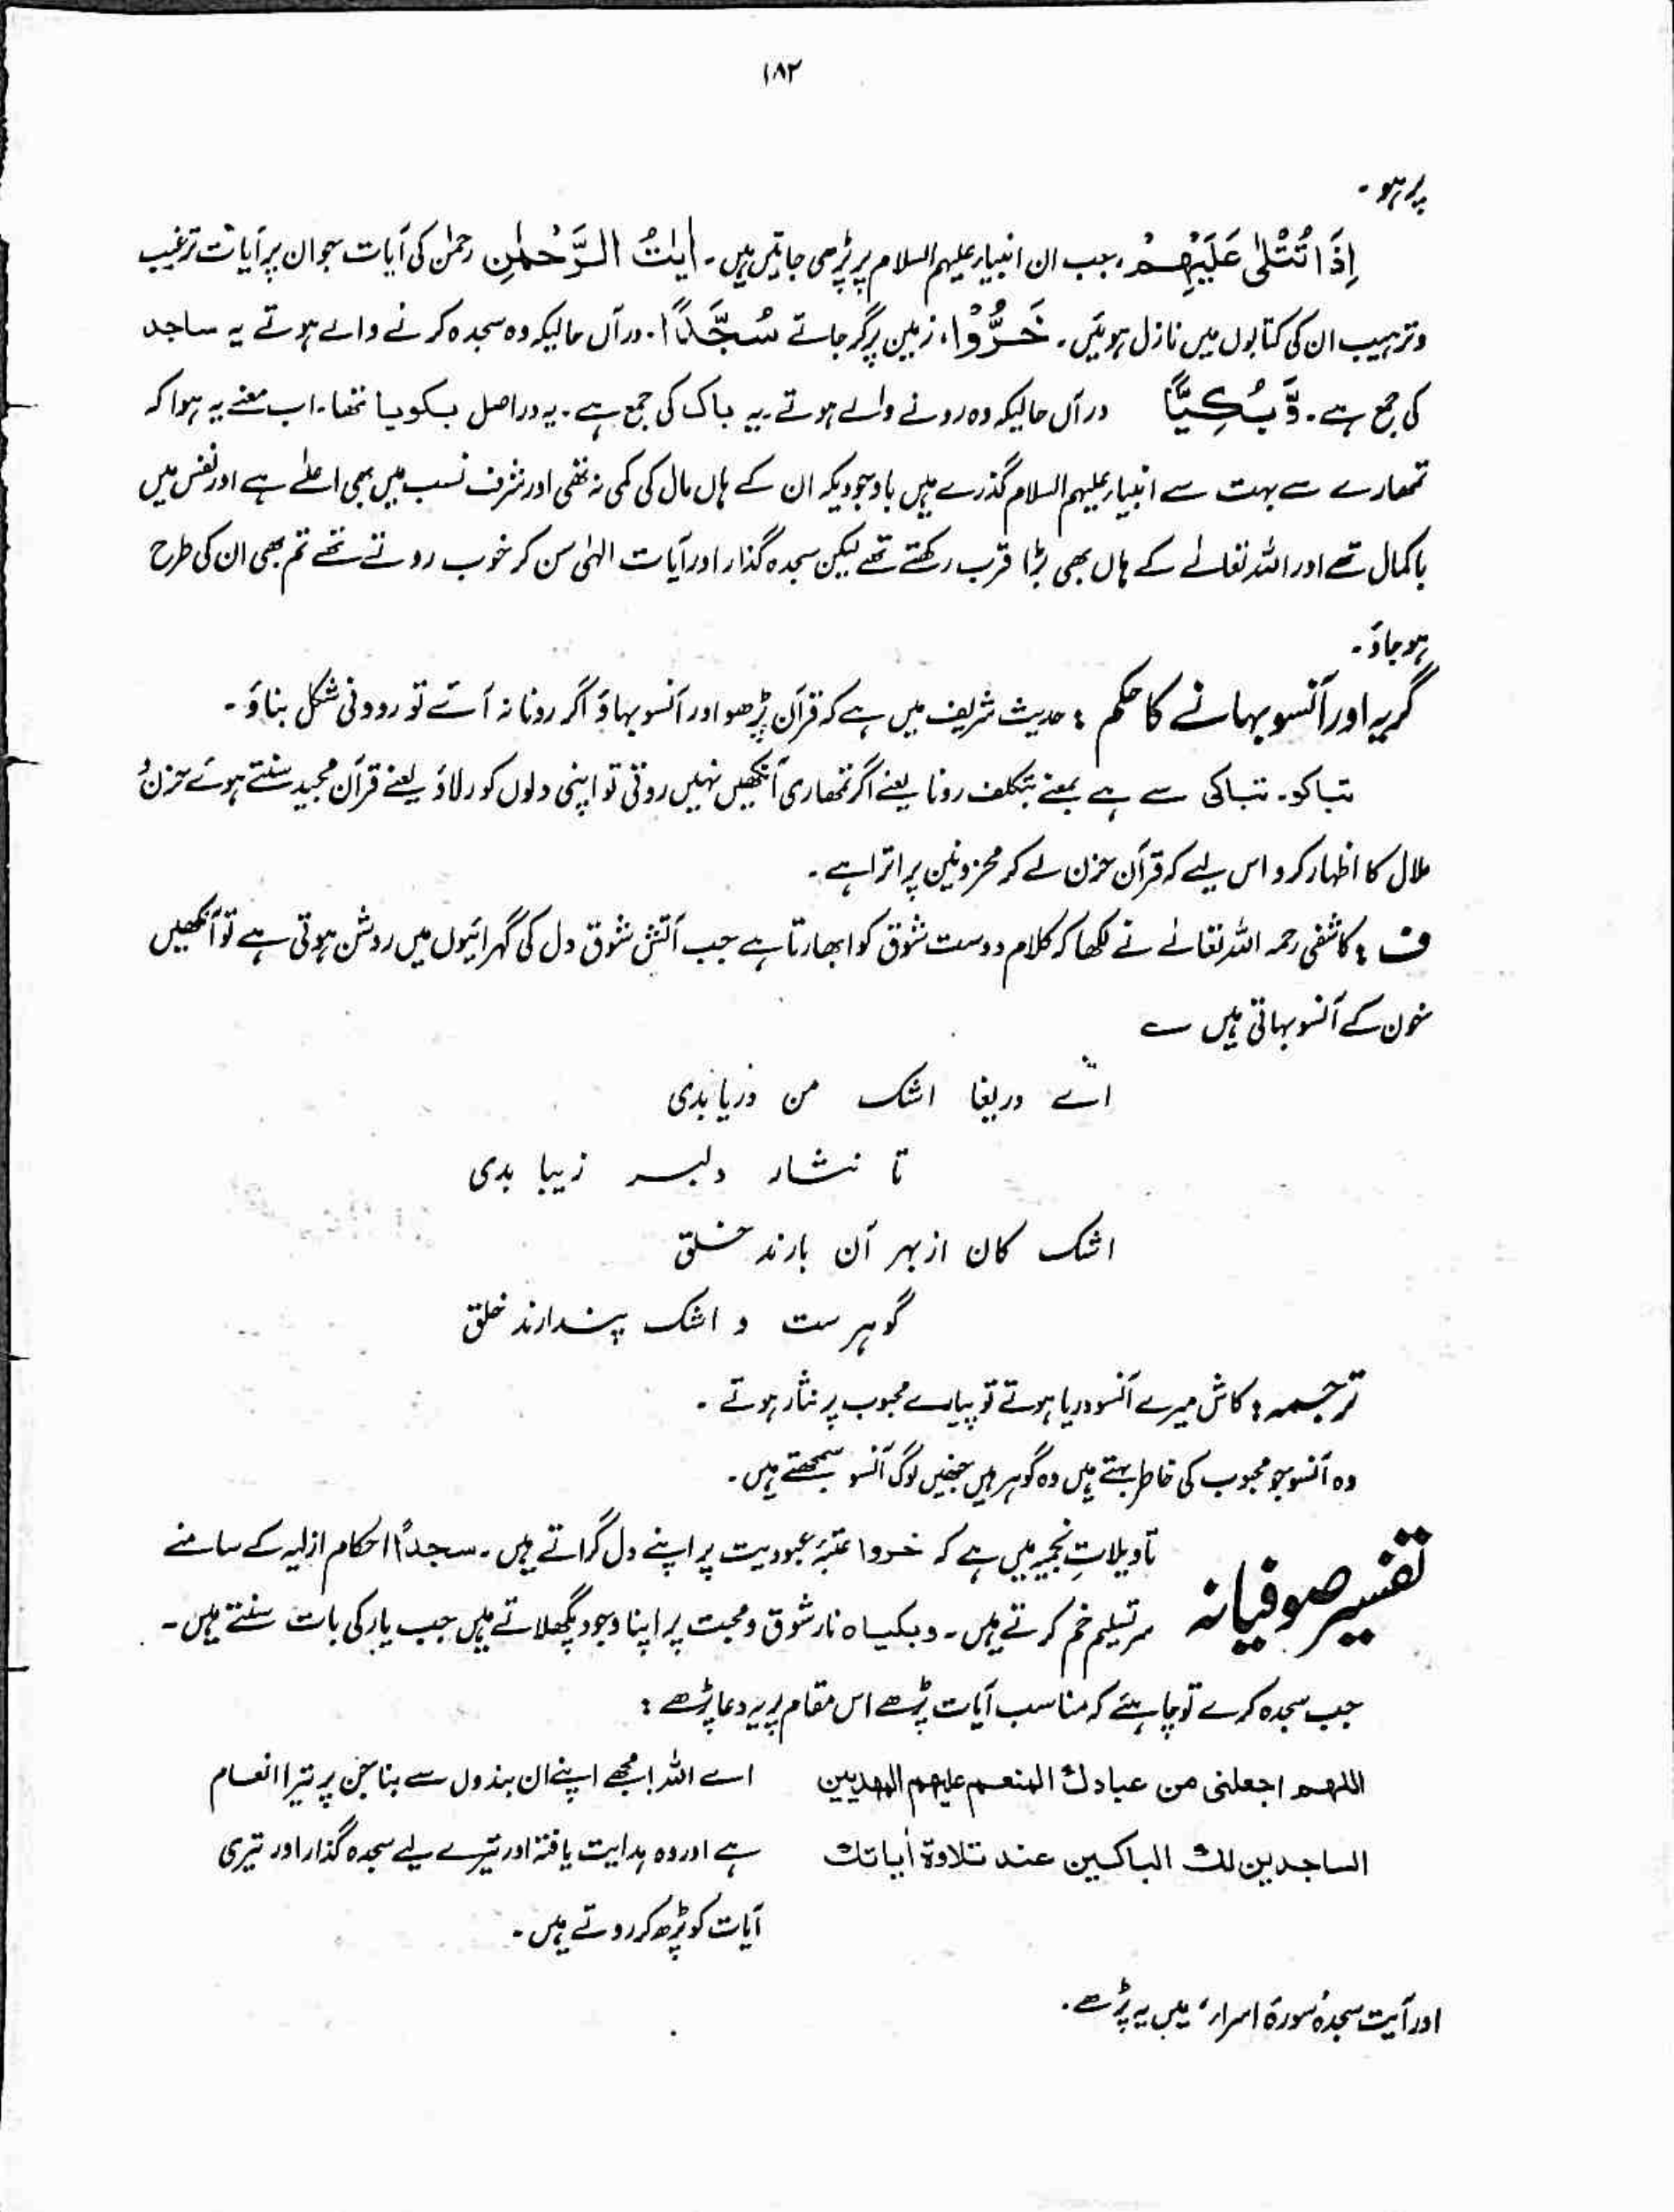 ۱۸۲
پر ہو۔
اِذَا تُتْلٰى عَلَيْهِمْ، جب ان انبیاء علیہم السلام پر پڑھی جاتیں ہیں۔ اٰيٰتُ الرَّحْمٰنِ رحمٰن کی آیات جو ان پر آیات ترغیب
وترہیب ان کی کتابوں میں نازل ہوئیں۔ خَرُّوْا، زمین پر گر جاتے سُجَّدًا۔ درآں حالیکہ وہ سجدہ کرنے والے ہوتے یہ ساجد
کی جمع ہے۔ وَّبُكِيًّا درآں حالیکہ وہ رونے والے ہوتے۔ یہ باک کی جمع ہے۔ یہ دراصل بکویا تھا۔ اب معنے یہ ہوا کہ
تمھارے سے بہت سے انبیاء علیہم السلام گذرے ہیں باوجودیکہ ان کے ہاں مال کی کمی نہ تھی اور شرف نسب میں بھی اعلےٰ ہے اور نفس میں
باکمال تھے اور اللہ تعالےٰ کے ہاں بھی بڑا قرب رکھتے تھے لیکن سجدہ گذار اور آیات الٰہی سن کر خوب روتے تھے تم بھی ان کی طرح
ہو جاؤ۔
گریہ اور آنسو بہانے کا حکم : حدیث شریف میں ہے کہ قرآن پڑھو اور آنسو بہاؤ اگر رونا نہ آئے تو رونی شکل بناؤ۔
تباکو۔ تباکی سے ہے بمعنے بتکلف رونا یعنے اگر تمھاری آنکھیں نہیں روتی تو اپنی دلوں کو رلاؤ یعنے قرآن مجید سنتے ہوئے حزن و
ملال کا اظہار کرو اس لیے کہ قرآن حزن لے کر محزونین پر اترا ہے۔
ف : کاشفی رحمہ اللہ تعالےٰ نے لکھا کہ کلام دوست شوق کو ابھارتا ہے جب آتش شوق دل کی گہرائیوں میں روشن ہوتی ہے تو آنکھیں
خون کے آنسو بہاتی ہیں ؎
اے دریغا اشک من دریا بدی
تا نثار دلبر زیبا بدی
اشک کان از بہر آن بارند خلق
گوہرست و اشک پندارند خلق
ترجمہ : کاش میرے آنسو دریا ہوتے تو پیارے محبوب پر نثار ہوتے۔
وہ آنسو جو محبوب کی خاطر بہتے ہیں وہ گوہر ہیں جنھیں لوگ آنسو سمجھتے ہیں۔
تفسیر صوفیانہ تاویلاتِ نجمیہ میں ہے کہ خروا عتبۂ عبودیت پر اپنے دل گراتے ہیں۔ سجدًا احکام ازلیہ کے سامنے
سر تسلیم خم کرتے ہیں۔ وبکیا ہ نار شوق و محبت پر اپنا وجود پگھلاتے ہیں جب یار کی بات سنتے ہیں۔
جب سجدہ کرے تو چاہئے کہ مناسب آیات پڑھے اس مقام پر یہ دعا پڑھے :
اللهم اجعلنی من عبادك المنعم علیهم المهدیین
الساجدین لك الباکین عند تلاوة أیاتك
اے اللہ! مجھے اپنے ان بندوں سے بنا جن پر تیرا انعام
ہے اور وہ ہدایت یافتہ اور تیرے لیے سجدہ گذار اور تیری
آیات کو پڑھ کر روتے ہیں۔
اور آیت سجدہ سورۃ اسراء میں یہ پڑھے۔